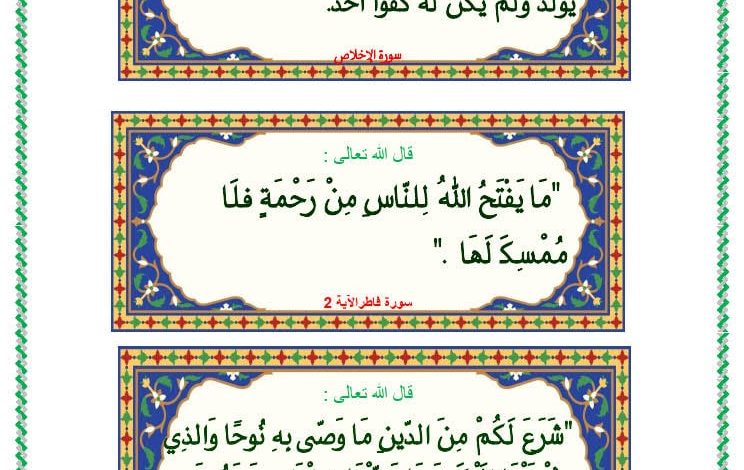 يولد ولم يكن له كفوا أحد.
سورة الإخلاص
قال الله تعالى :
"مَا يَفْتَحُ اللهُ لِلنَّاسِ مِنْ رَحْمَةٍ فلَا
مُمْسِكَ لَهَا ."
سورة فاطرالآية 2
قال الله تعالى :
"شَرَعَ لَكُمْ مِنَ الدّينِ مَا وَصّى بهِ نُوحًا وَالذِي